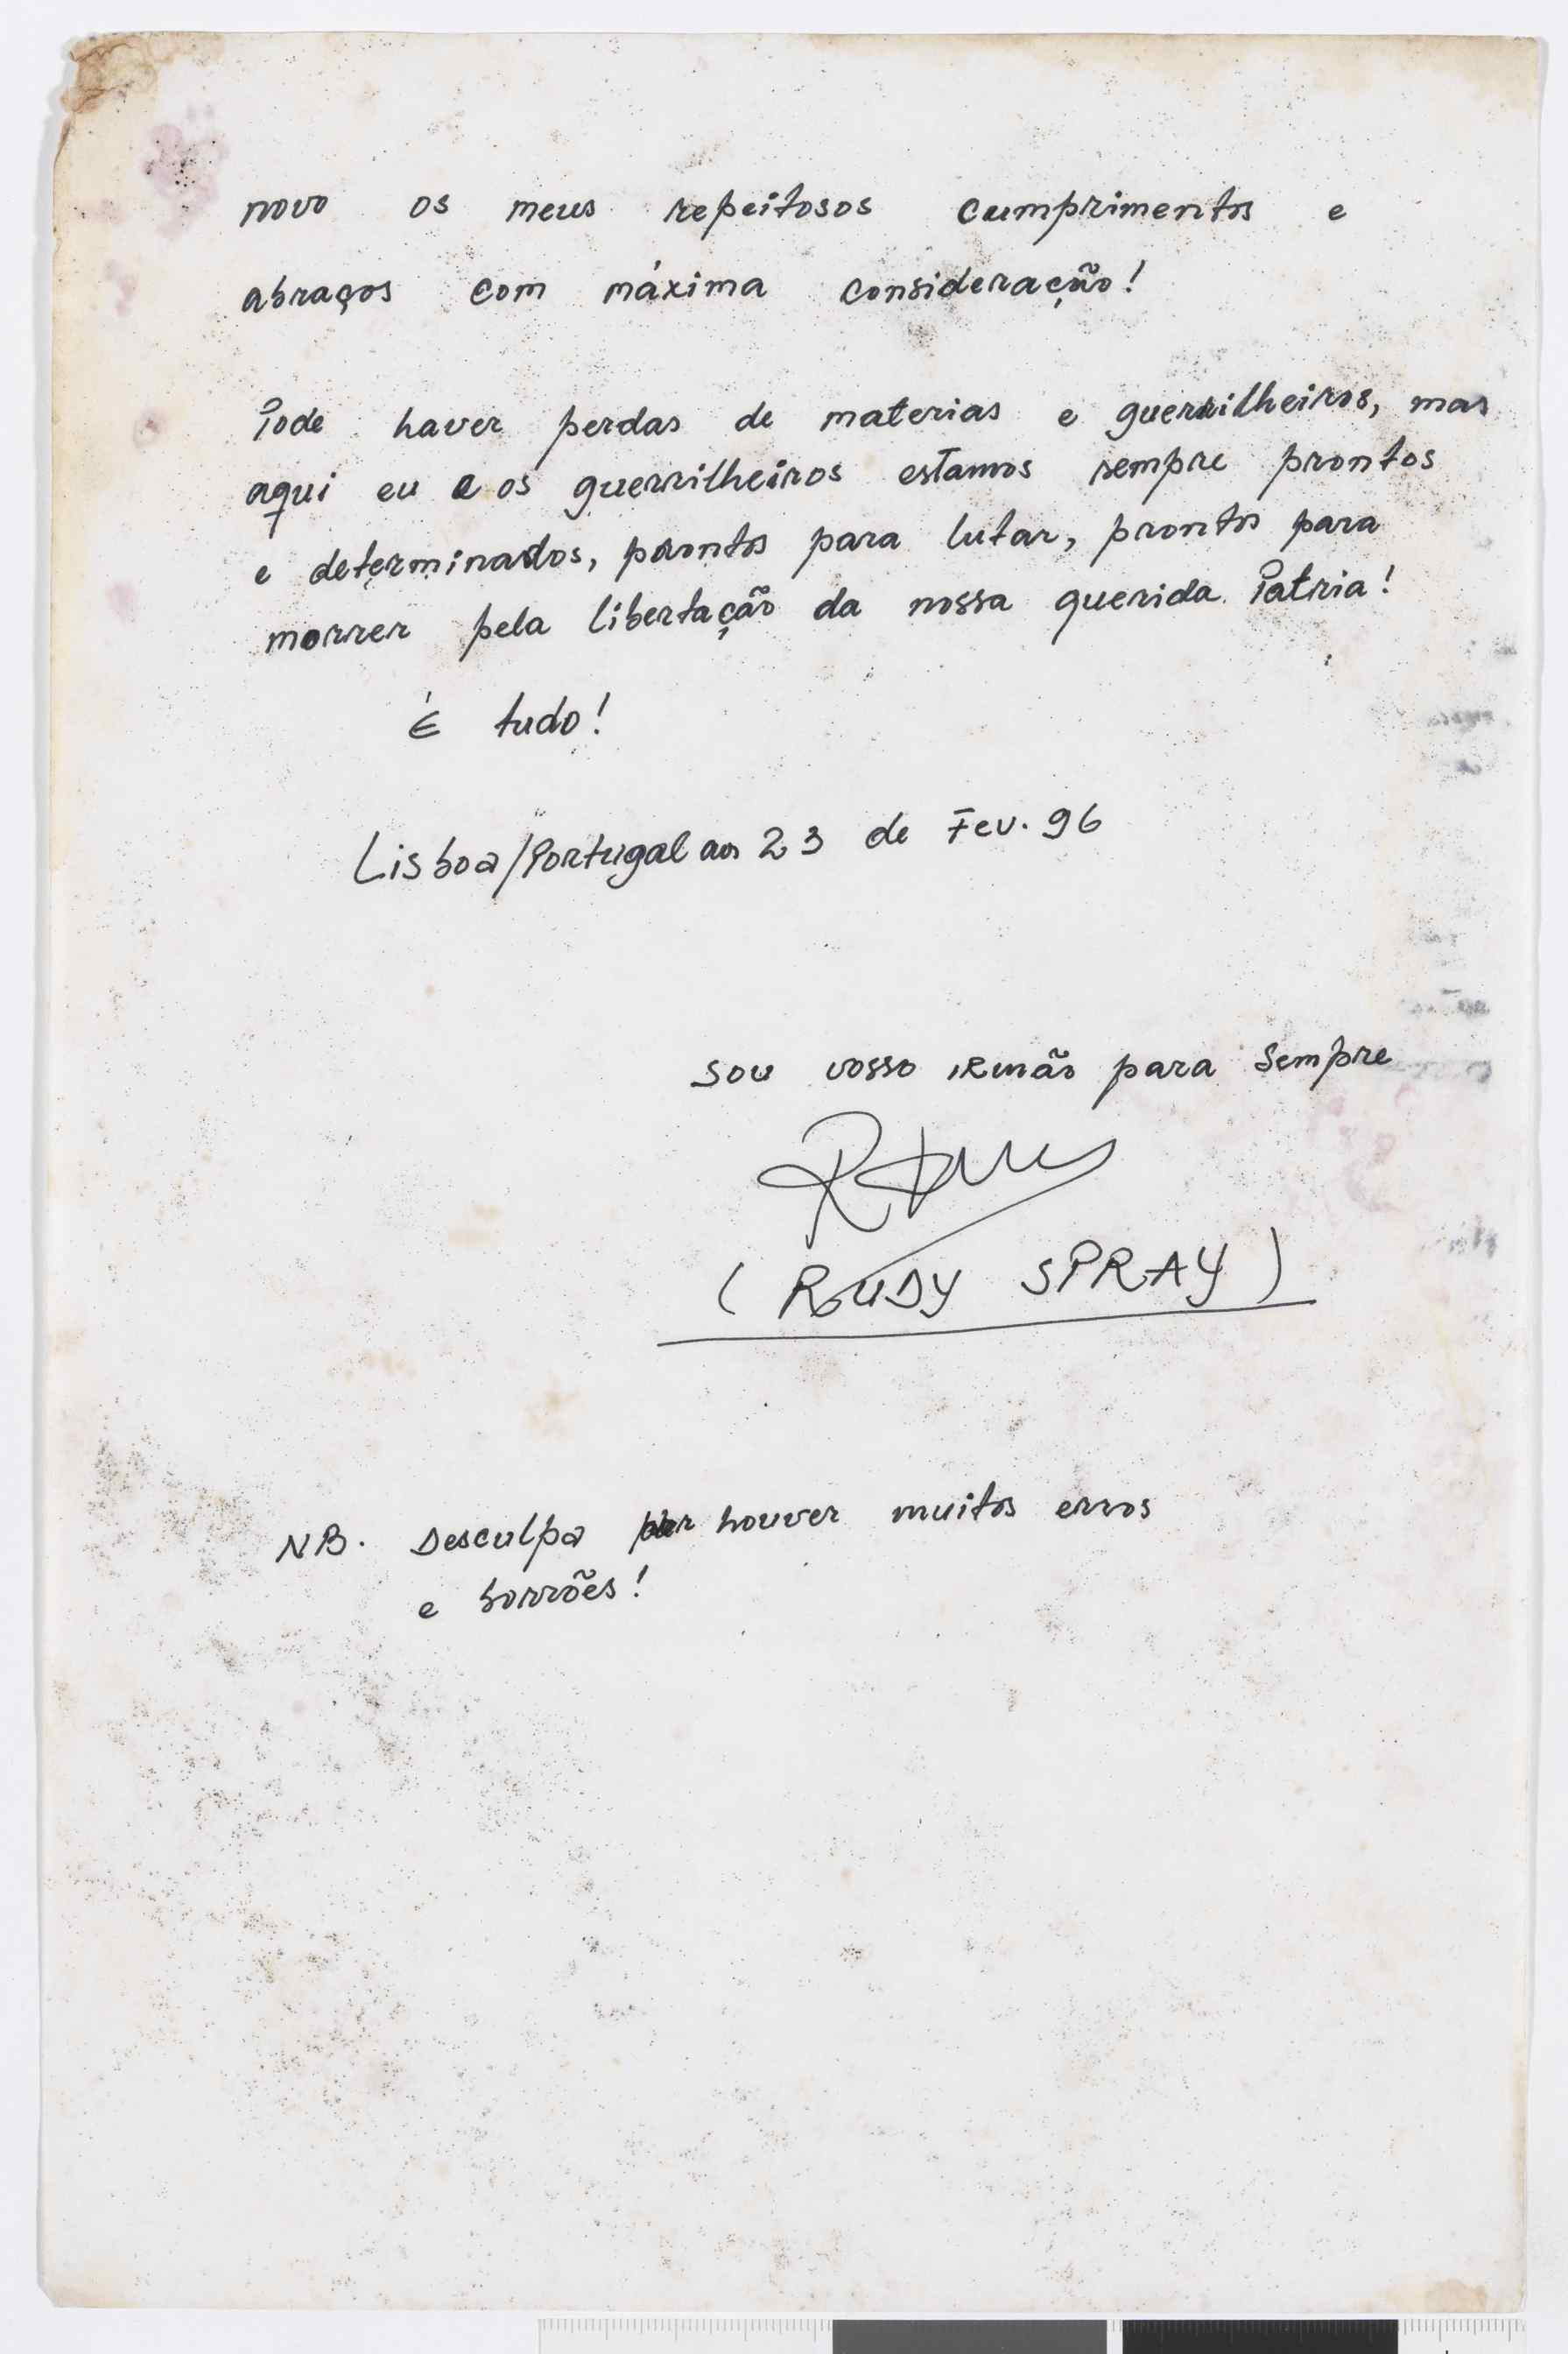 novo os meus repeitosos cumprimentos e
abraços com máxima consideração!
Pode haver perdas de materias e guerrilheiros, mas
aqui eu e os guerrilheiros estamos sempre prontos
e determinados, prontos para lutar, prontos para
morrer pela libertação da nossa querida Patria!
É tudo!
Lisboa/Portugal aos 23 de Fev. 96
Sou vosso irmão para Sempre
(RUDY SPRAY)
NB. Desculpa por houver muitos erros
e borrões!